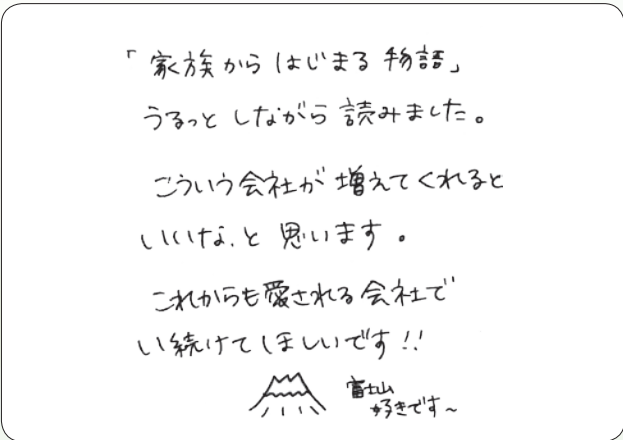 「家族からはじまる物語」
うるっとしながら読みました。
こういう会社が増えてくれると
いいな、と思います。
これからも愛される会社で
い続けてほしいです!!
富士山
好きです~